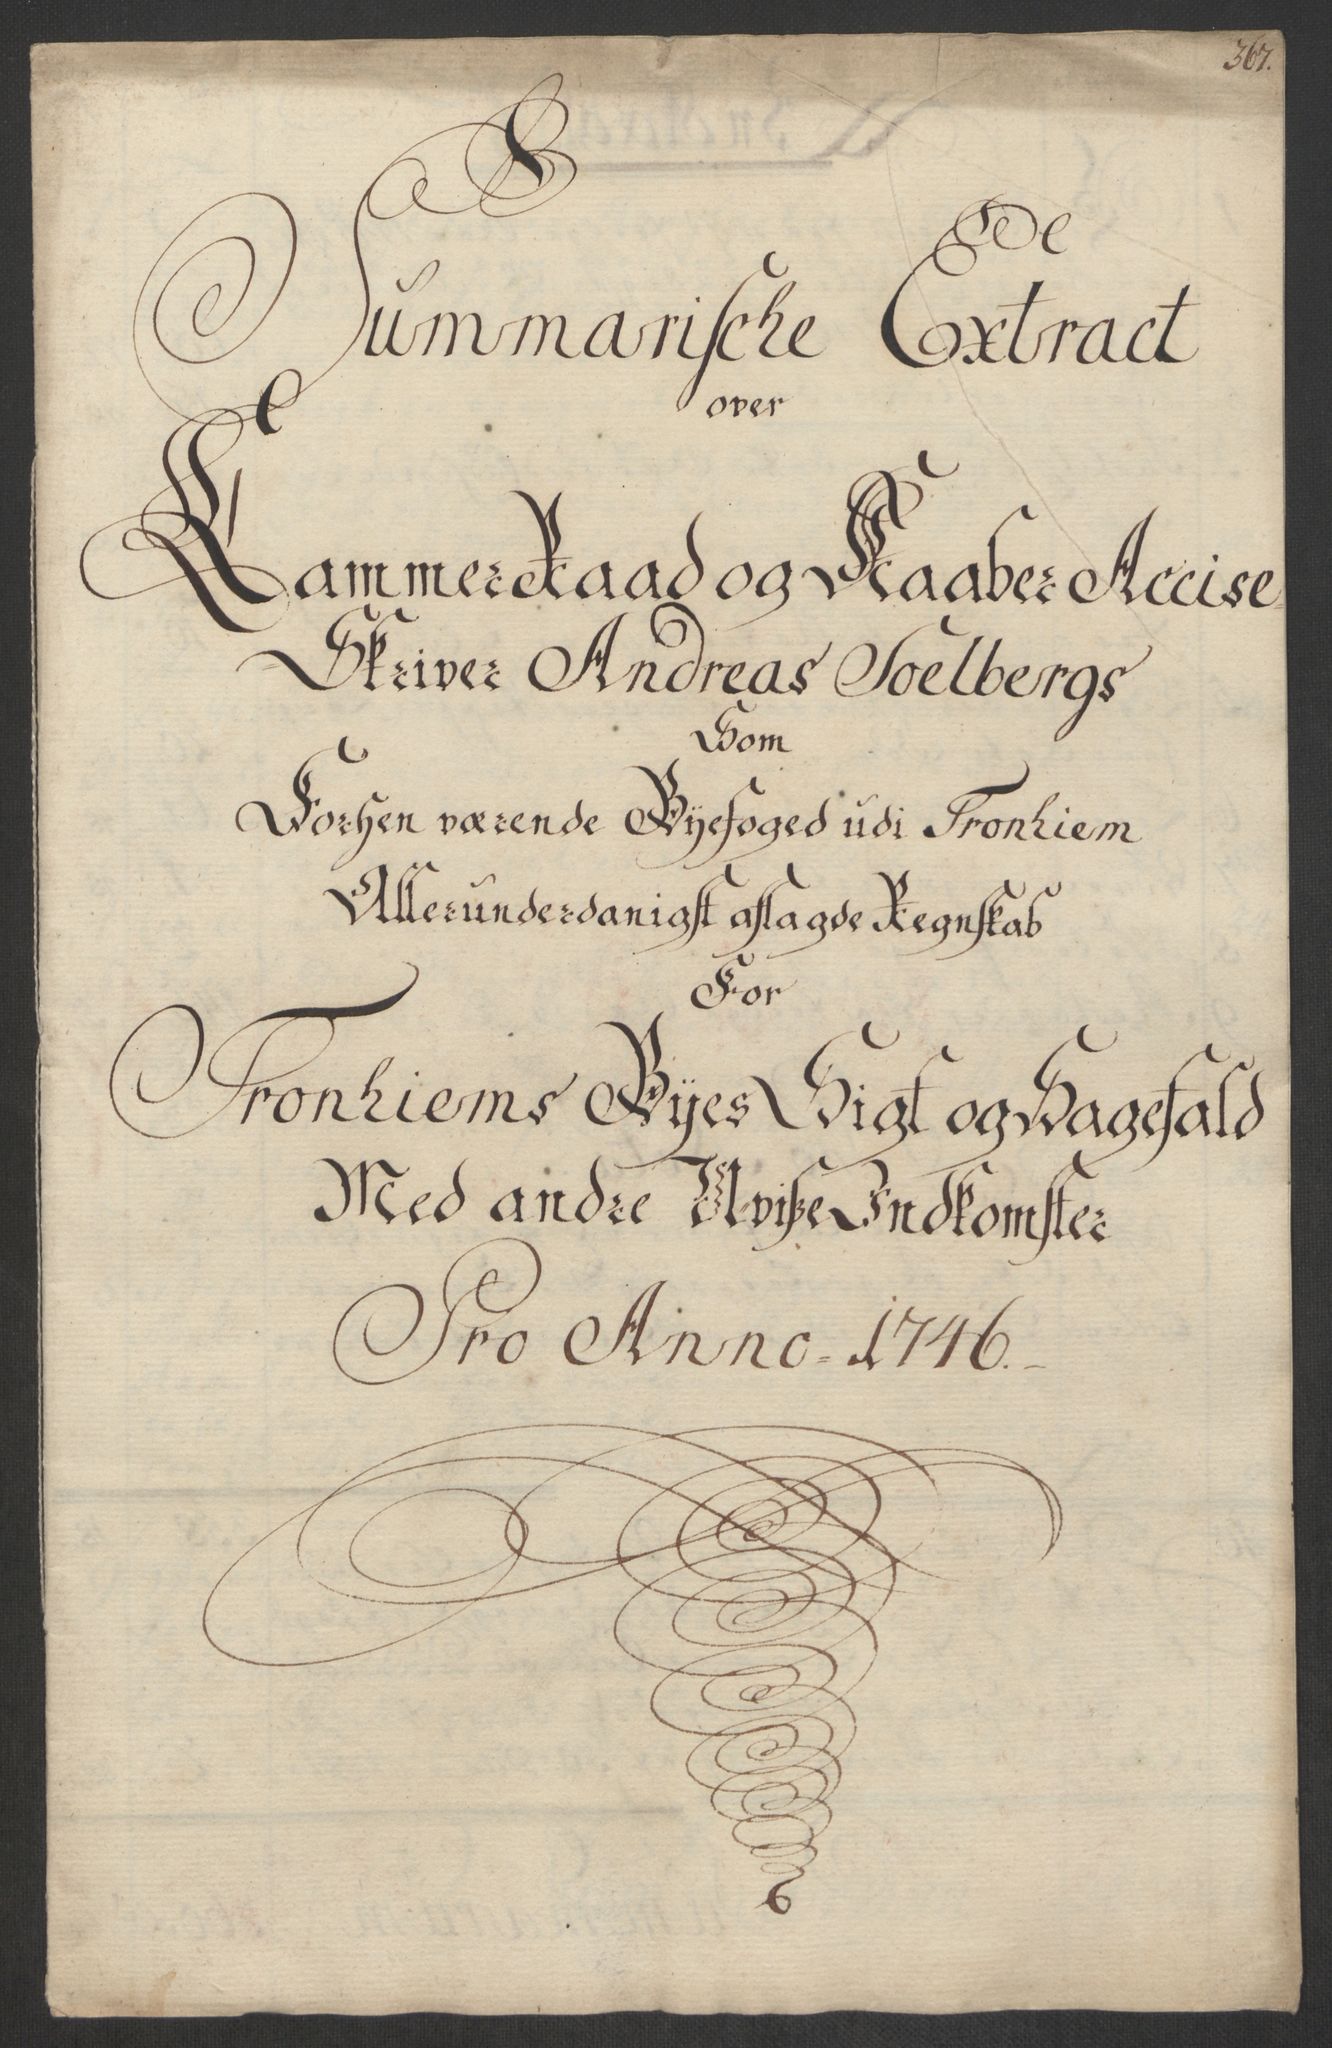 367.
Summarische Extract
over
Kammer Raad og Kaaber Accise-
Skriver Andreas Soelbergs
Som
Forhen værende Byefoged udi Tronhiem
Allerunderdanigst aflagde Regnskab
For
Tronhiems Byes Sigt og Sagefald
Med andre Uviße Indkomster
Pro Anno 1746.